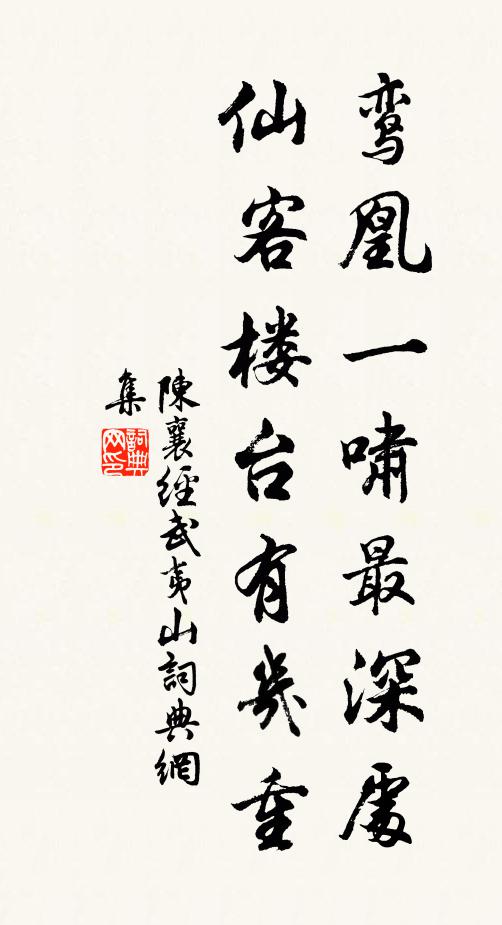 鸾凰一啸最深處
仙客楼台有幾重
陳襄經武夷山詞典網
集
詞典
网印